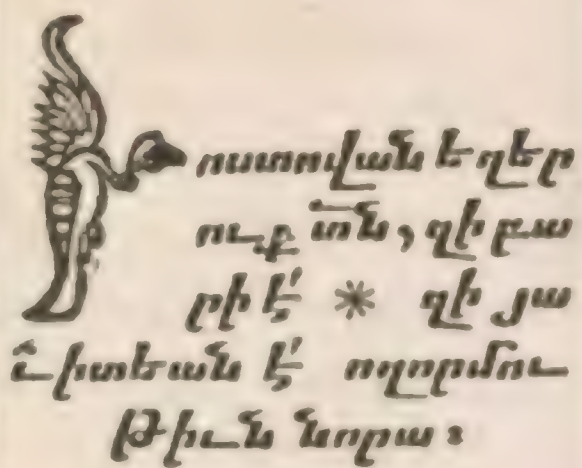 Խոստովան եղեր
ուք տ՟ն, զի բա
րի է՛ * զի յա
ւիտեան է՛ ողորմու
թիւն նորա։